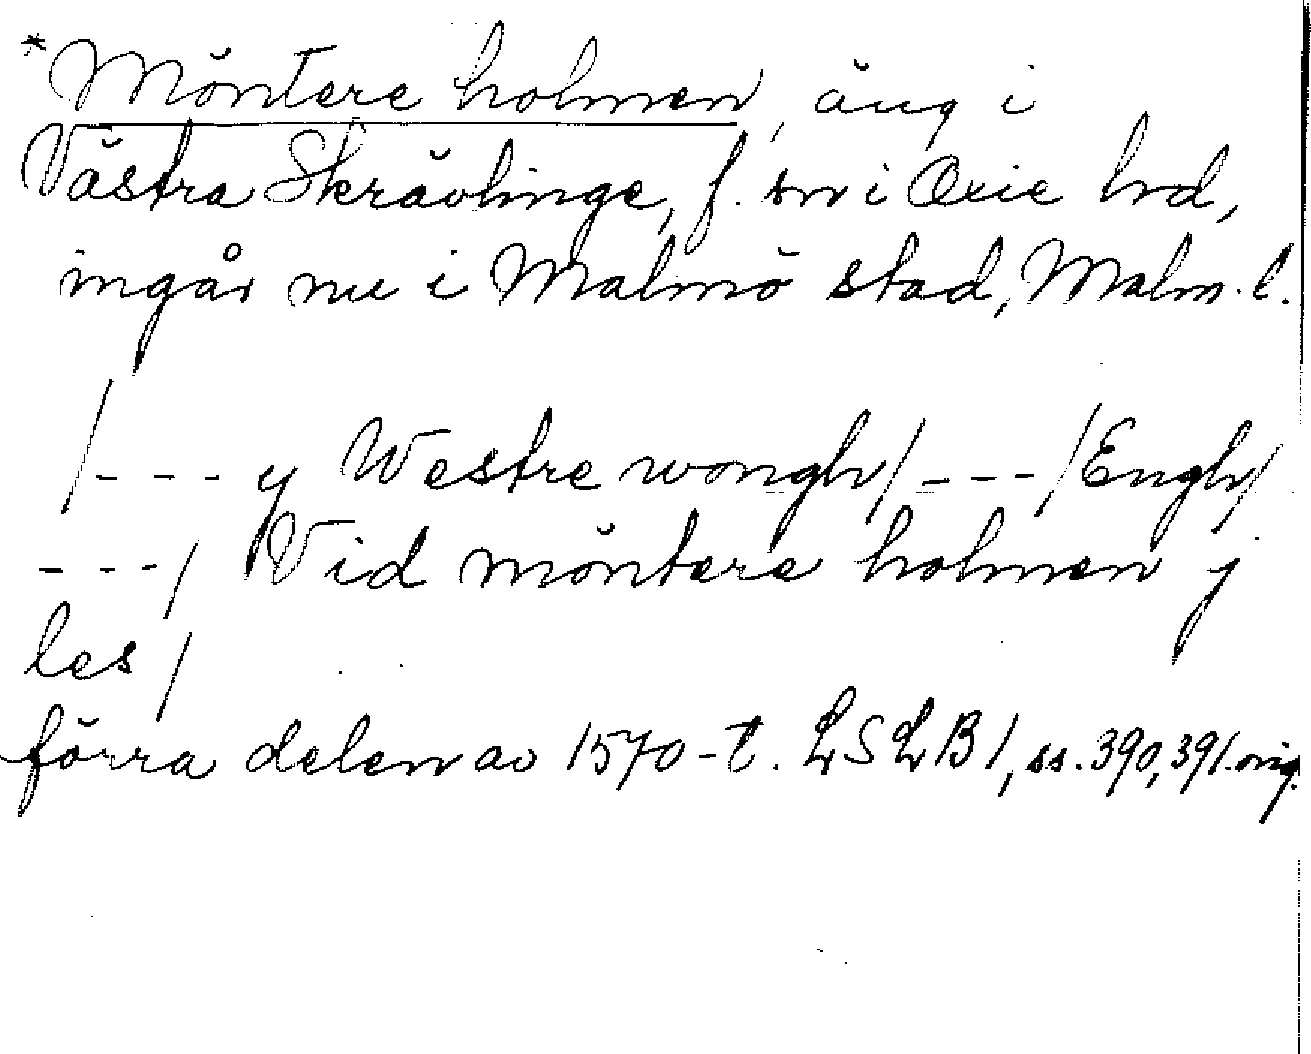 *Möntere holmen, äng i
Västra Skrävlinge, f. sn i Oxie hd,
ingår nu i Malmö stad, Malm. l.
/--- y Westre wongh/---/Engh/
---/ Vid möntere holmen j
les/
förra delen av 1570-t. LSLB1, ss. 390, 391. orig.